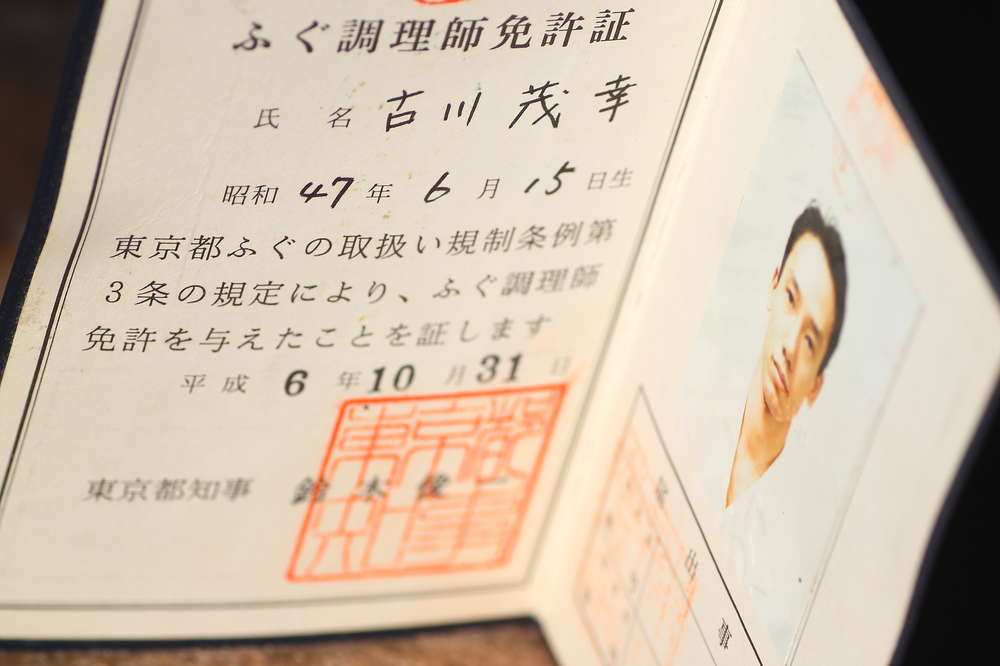 ふぐ調理師免許証
氏 名 古川 茂幸
昭和 47 年 6 月 15 日生
東京都ふぐの取扱い規制条例第
3条の規定により、ふぐ調理師
免許を与えたことを証します
平成 6 年 10 月 31 日
東京都知事 鈴木俊一